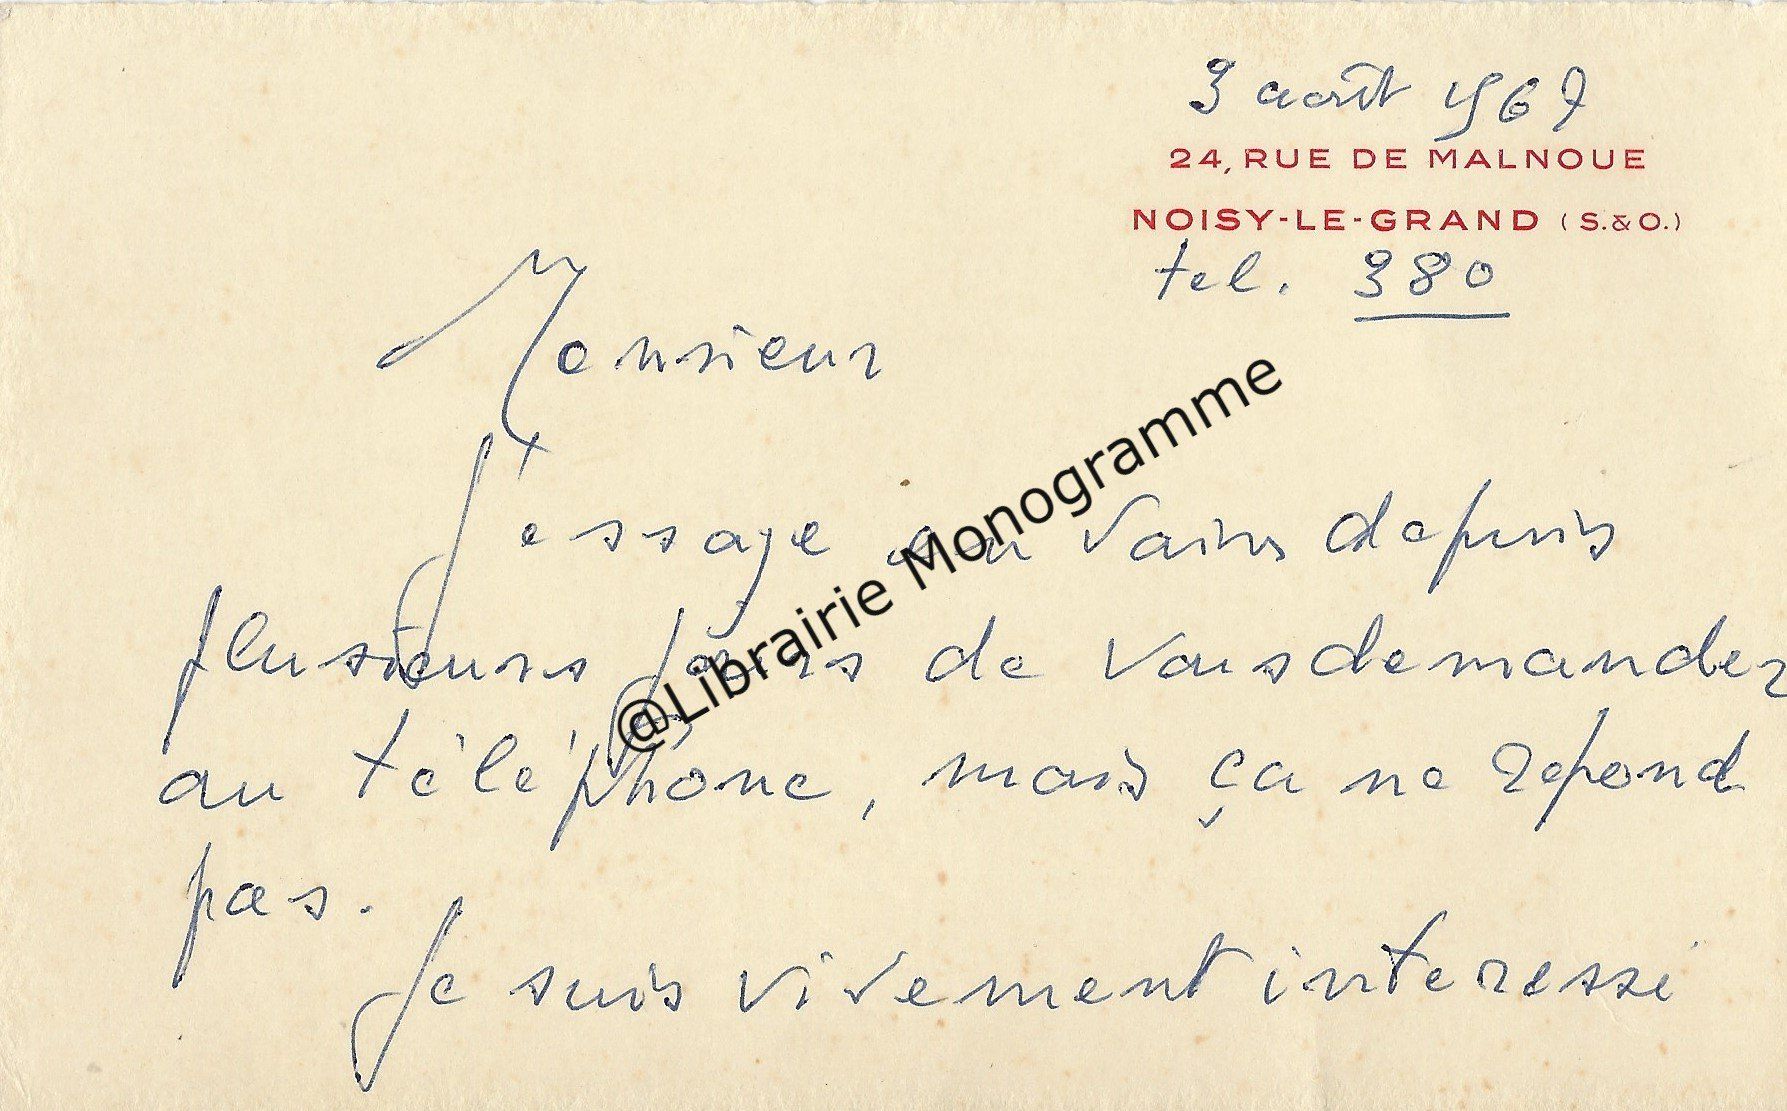 3 août 1967
24, RUE DE MALNOUE
NOISY-LE-GRAND (S.&O.)
tel. 380
Monsieur
J'essaye en vain depuis
plusieurs jours de vous demander
au téléphone, mais ça ne repond
pas.
Je suis vivement interessé
@Librairie Monogramme